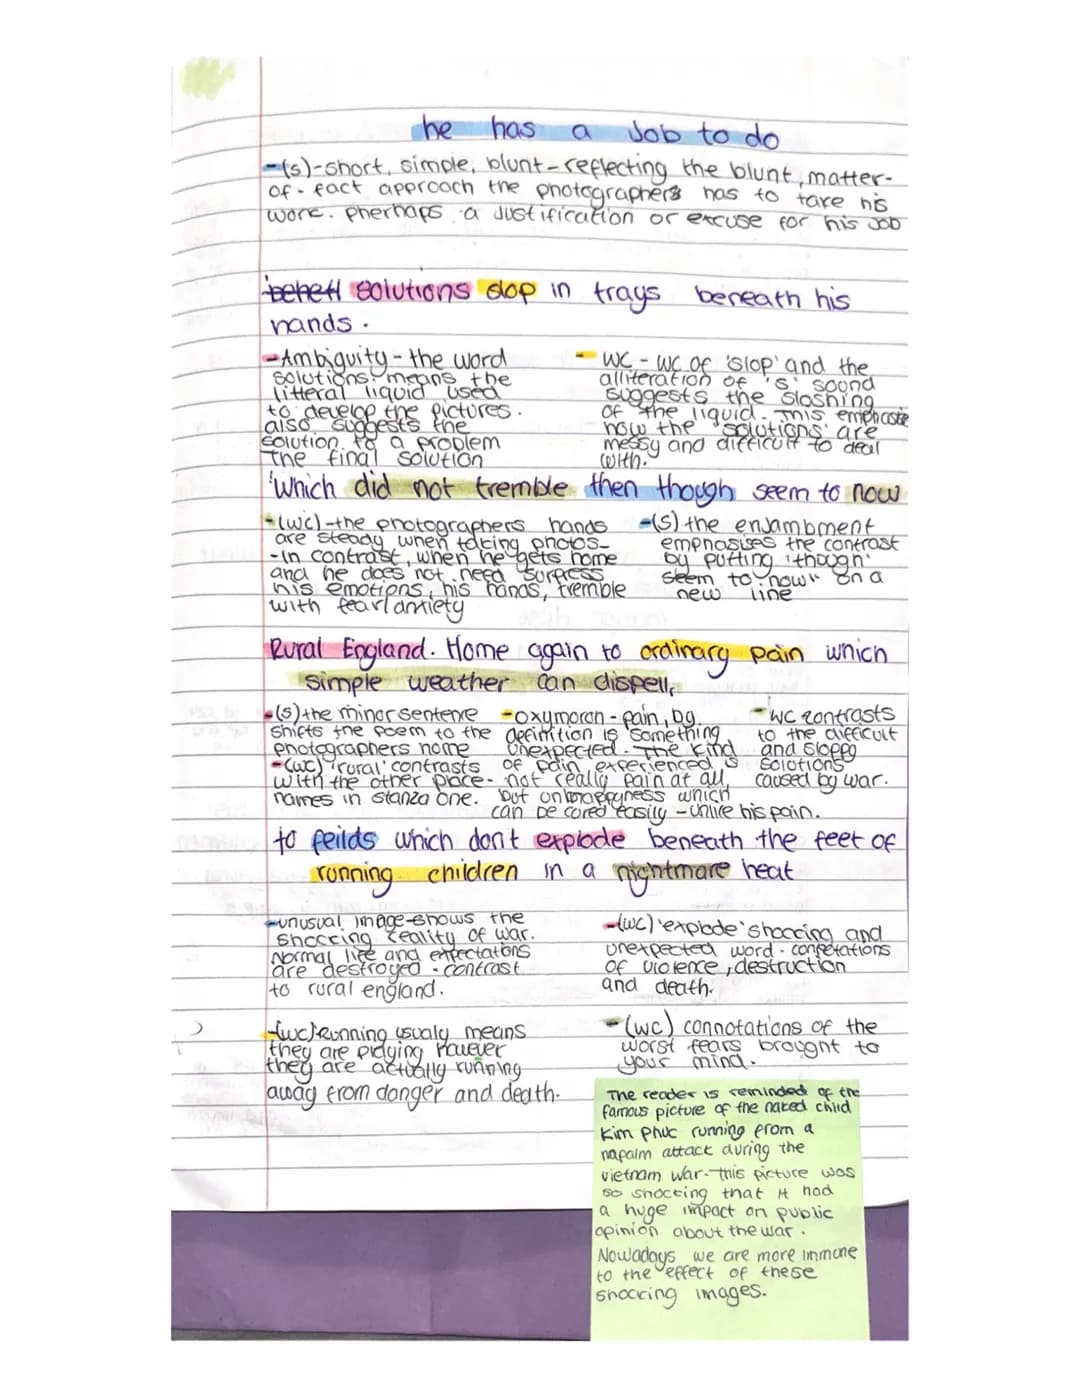 he has a Job to do
-(s)-short, simple, blunt-reflecting the blunt, matter-
of-fact approach the photographers has to take his
work. pherhaps a justification or excuse for his job
solutions slop in trays beneath his
hands.
-Ambiguity - the word
solutions: means the
litteral liquid used
to develop the pictures.
also suggests the
solution to a problem
The final solution
- WC - WC of 'slop' and the
alliteration of 's' sound
suggests the sloshing
of the liquid. This emphasise
how the 'solutions' are
messy and difficult to deal
with.
'Which did not tremble then though seem to now
-(wc)-the photographers hands
are steady when taking photos-
-in contrast, when he gets home
and he does not need surpress
his emotions, his hands, tremble
with fear/anxiety
-(s) the enjambment
emphasises the contrast
by putting 'though
seem to now" on a
new line
Rural England. Home again to ordinary pain which
simple weather can dispell,
-(s) the minor sentence
shifts the poem to the
photographers home
-(wc) 'rural' contrasts
with the other place-
names in stanza one.
-oxymoron - pain, by
definition is something
unexpected. The kind
of pain experienced is
not really pain at all,
but unhappyness which
can be cured easily - unlike his pain.
-WC contrasts
to the difficult
and sloppy
solutions
caused by war.
to feilds which don't explode beneath the feet of
running children in a nightmare heat
-unusual image-shows the
shocking reality of war.
Normal life and expectations
are destroyed - contrast
to rural england.
-(wc) 'explode' shocking and
unexpected word - connotations
of violence, destruction
and death.
-(wc) Running usualy means
they are playing however
they are actually running
away from danger and death.
-(wc) connotations of the
worst fears brought to
your mind.
The reader is reminded of the
famous picture of the naked child
Kim Phuc running from a
napalm attack during the
vietnam war. This picture was
so shocking that it had
a huge impact on public
opinion about the war.
Nowadays we are more immune
to the effect of these
shocking images.